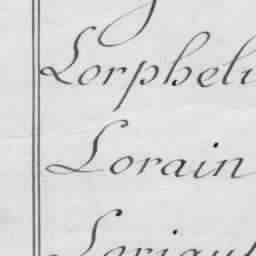 Lorpheli
Lorain